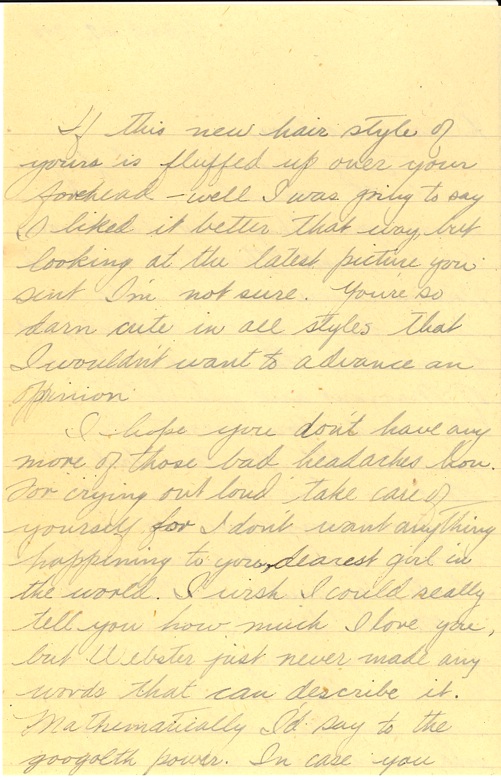 If this new hair style of
yours is fluffed up over your
forehead - well I was going to say
I liked it better that way, but
looking at the latest picture you
sent I'm not sure. You're so
darn cute in all styles that
I wouldn't want to advance an
oppinion
I hope you don't have any
more of those bad headaches Hon.
For crying out loud take care of
yourself for I don't want anything
happening to you, dearest girl in
the world. I wish I could really
tell you how much I love you,
but Webster just never made any
words that can describe it.
Mathimatically I'd say to the
googolth power. In case you